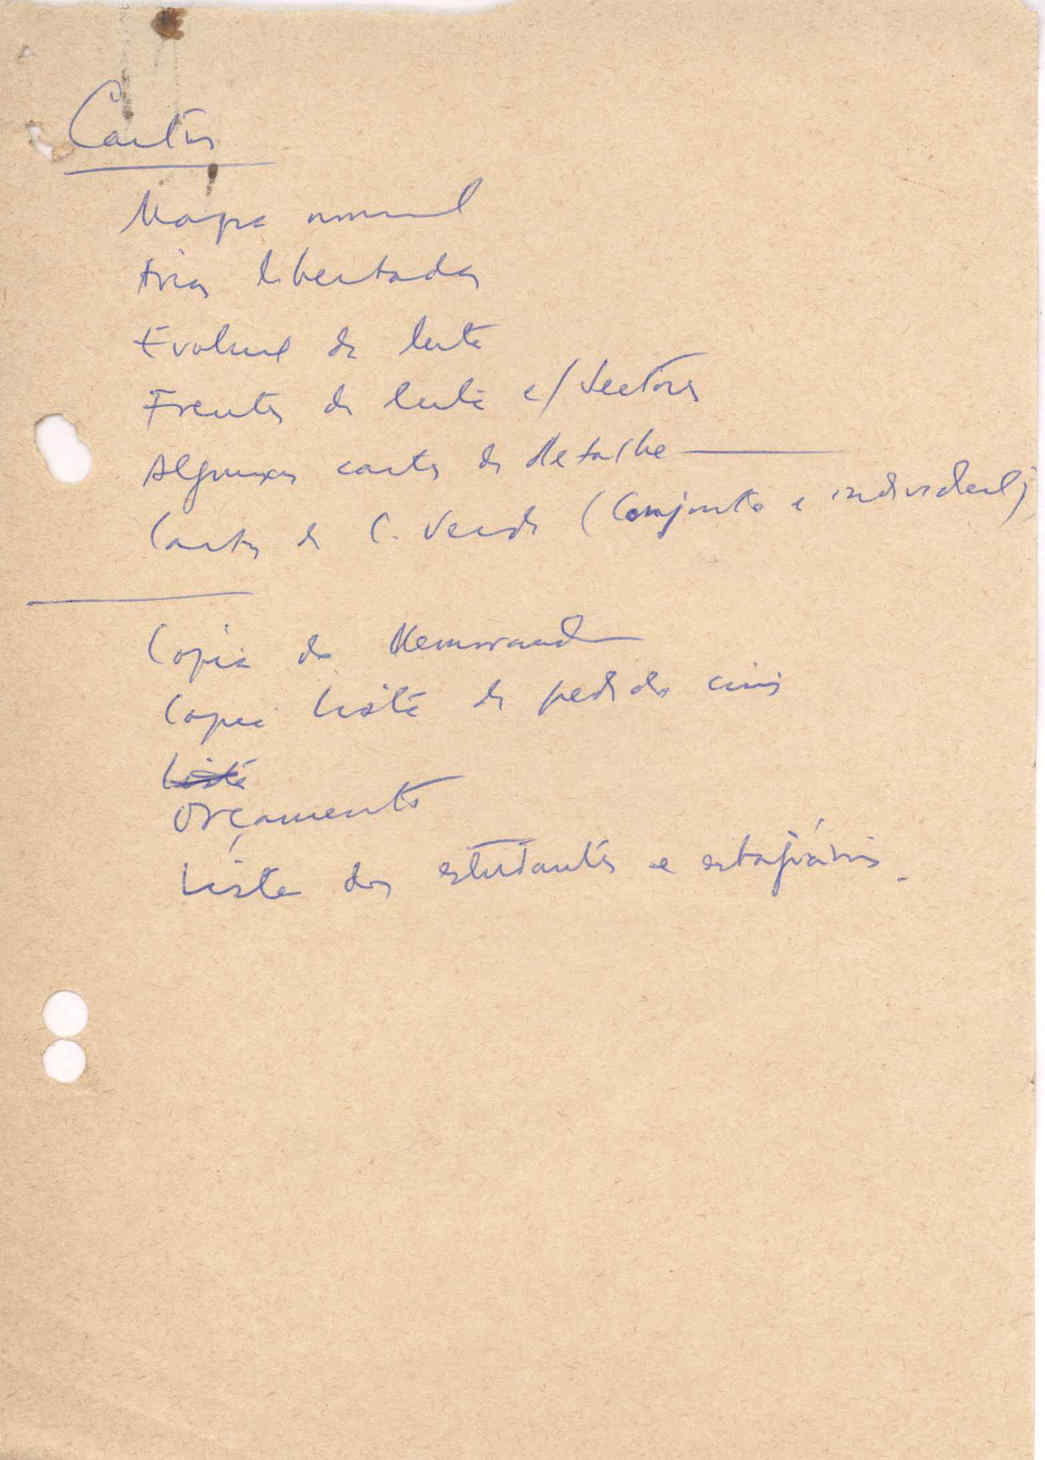 Cartas
Mapa normal
Áreas libertadas
Evolução da luta
Frentes de luta c/ Sectores
Algumas cartas de detalhe
Cartas de C. Verde (Conjunto e individual)
Copia do Memorand
Copia Lista de pedidos civis
Lista
Orçamento
Lista dos estudantes e estagiários.